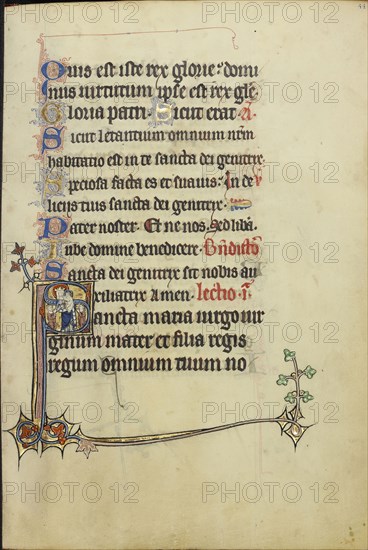 Quis est iste rex glorie: domi
nus uirtutum ipse est rex gl̄e.
Gloria patri. Sicut erat. A.
Sicut letantium omnium nr̄m
habitatio est in te sancta dei genitrix.
Speciosa facta es et suauis: In de
liciis tuis sancta dei genitrix.
Pater noster. Et ne nos. Sed liba.
Iube domine benedicere.
Sancta dei genitrix sit nobis au
xiliatrix Amen. lectio .i.
Sancta maria uirgo uir
ginum mater et filia regis
regum omnium tuum no
PHOTO 12